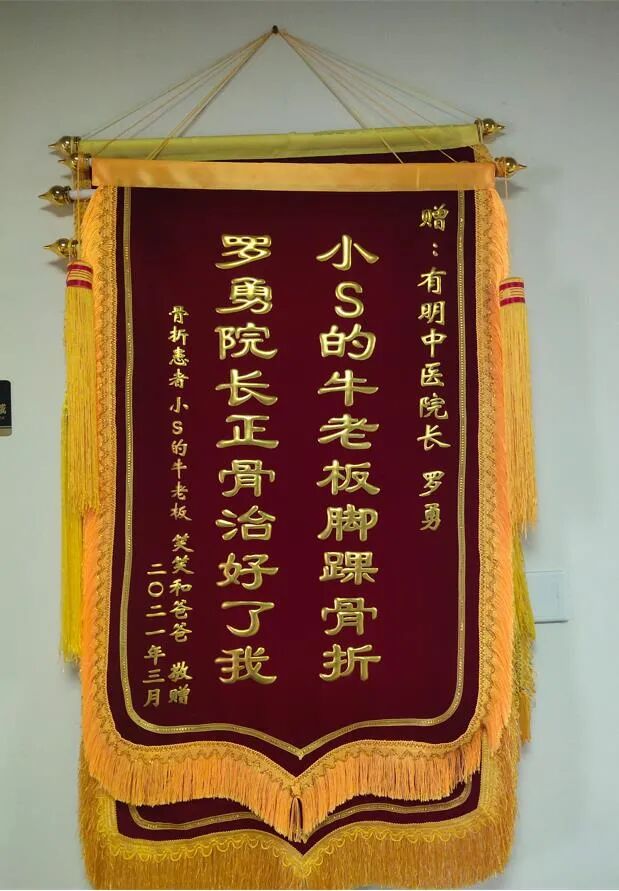 赠：有明中医院长 罗勇
小S的牛老板脚踝骨折
罗勇院长正骨治好了我
骨折患者 小S的牛老板 笑笑和爸爸 敬赠
二〇二一年三月